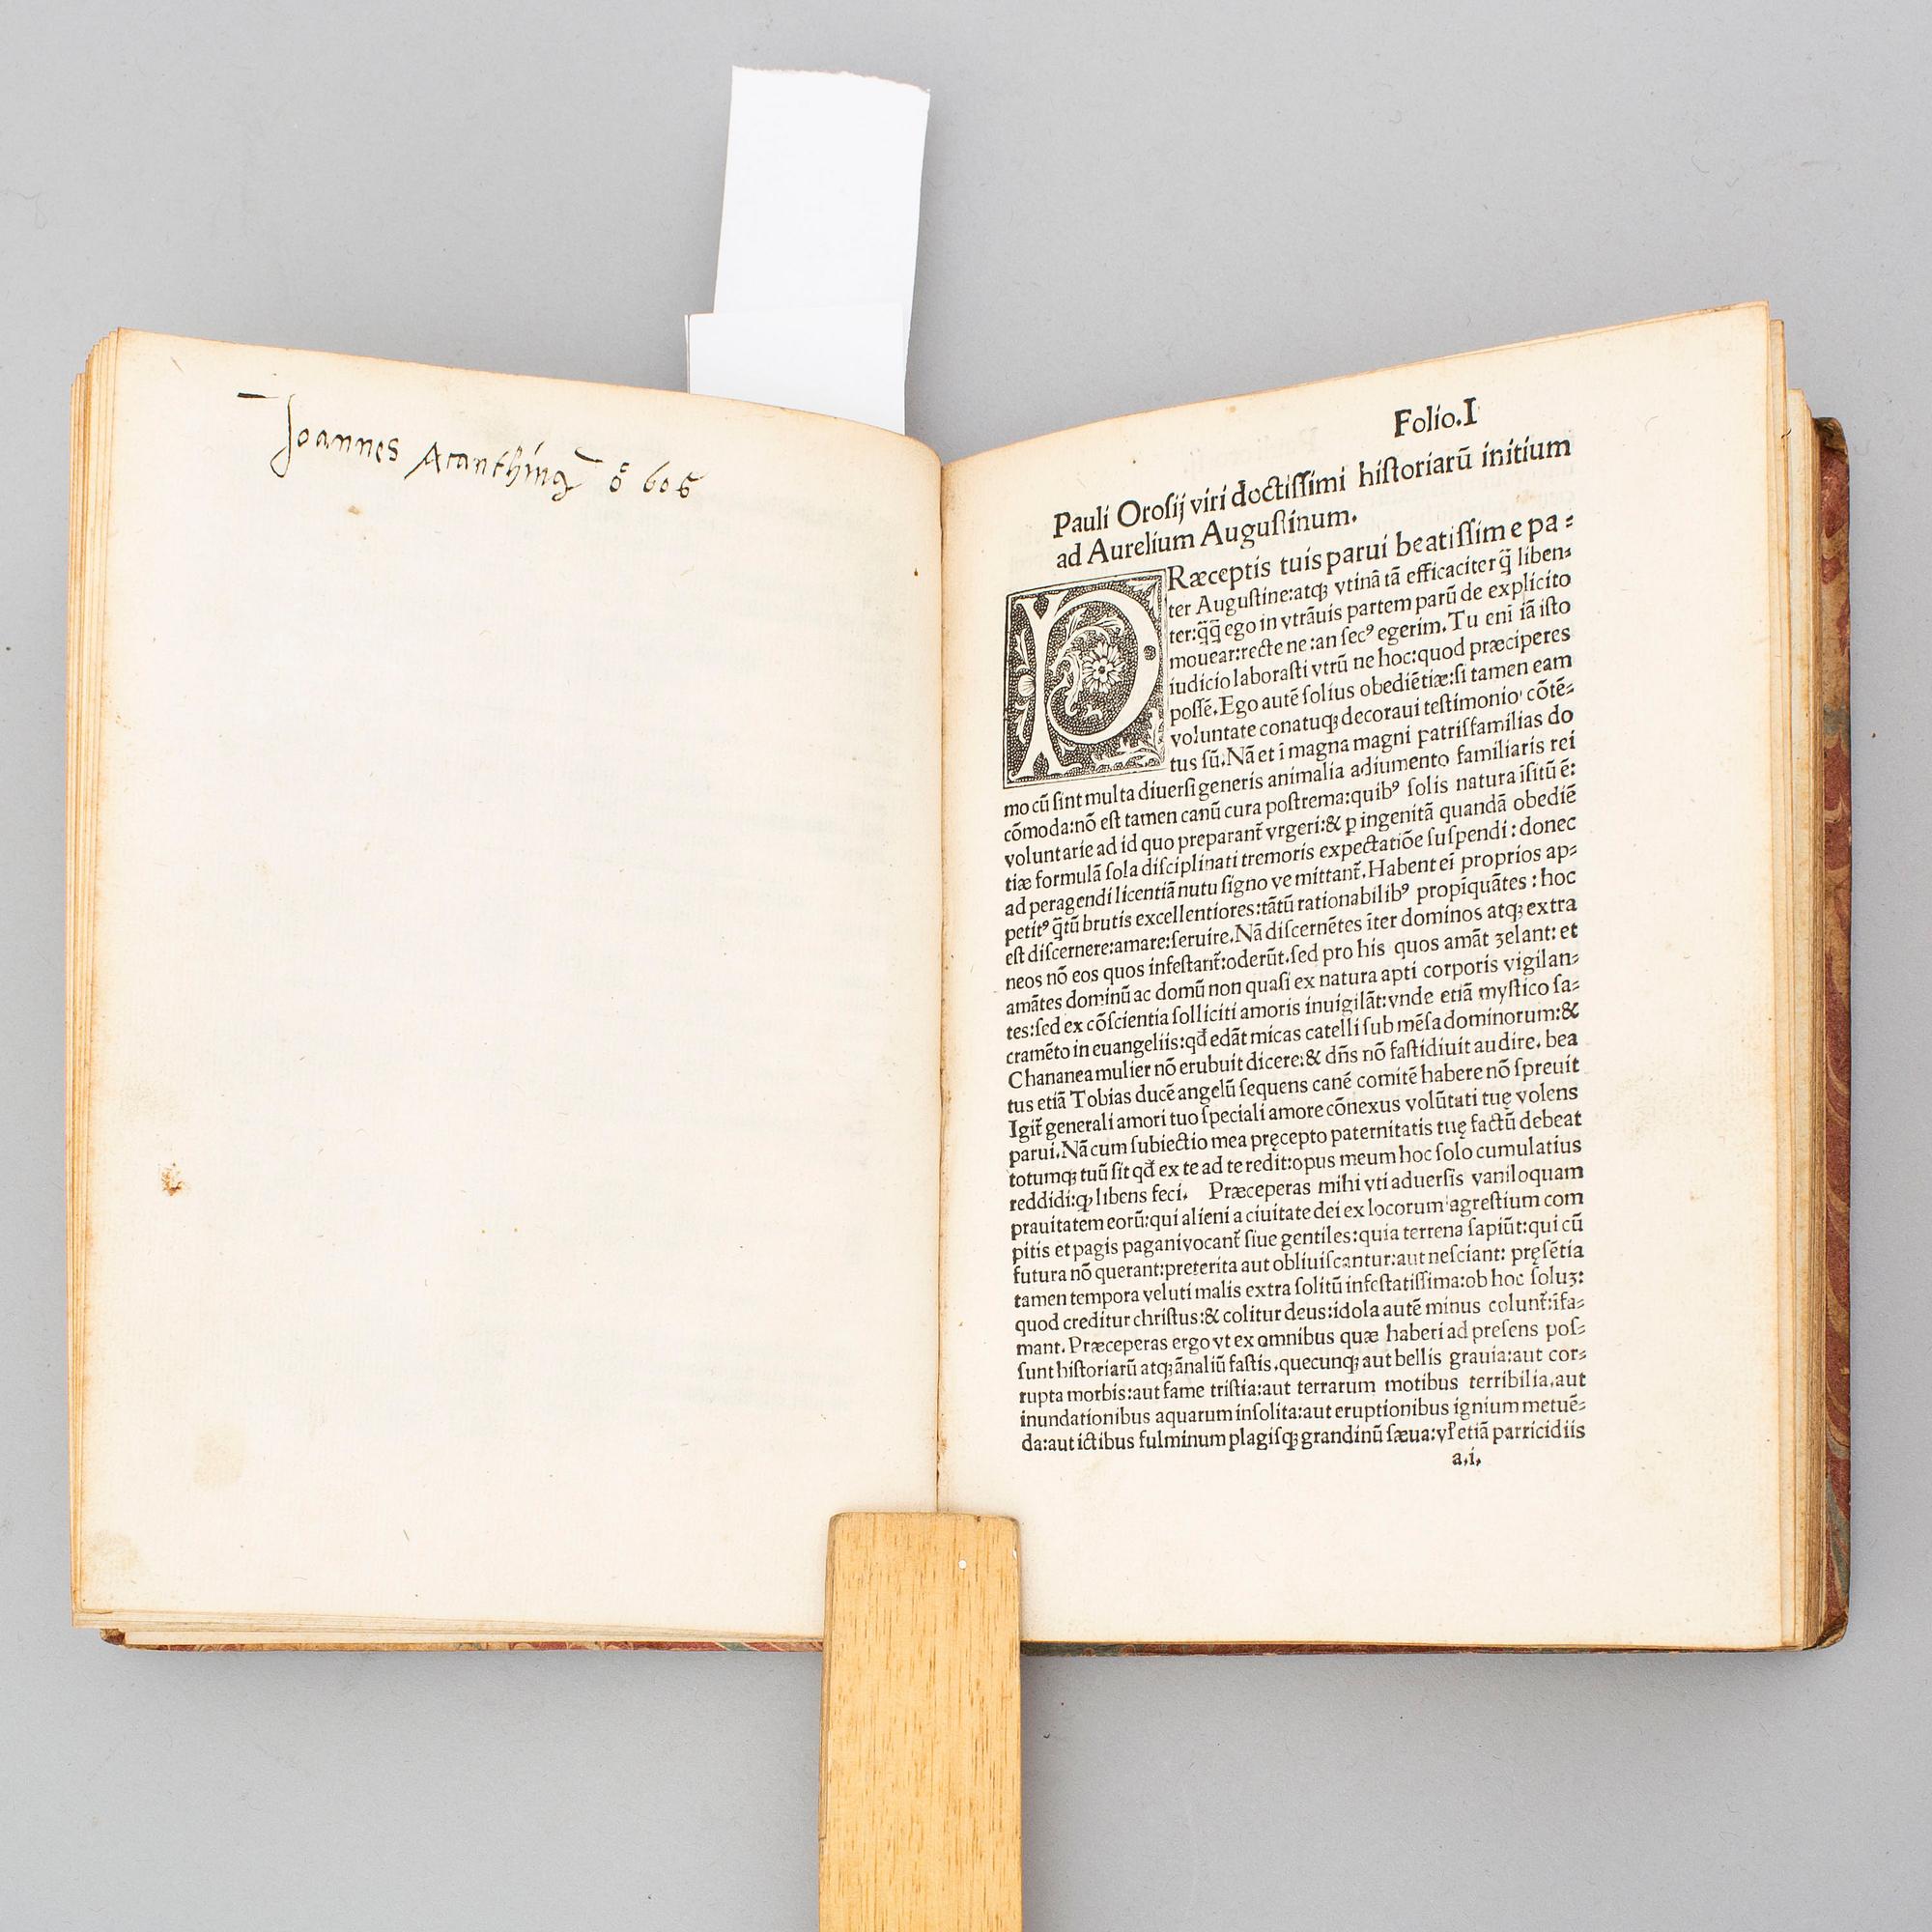 Joannes
Folio.I
Pauli Orosij viri doctissimi historiarū initium
ad Aurelium Augustinum.
PRæceptis tuis parui beatissime pa=
ter Augustine:atqꝫ vtinā tā efficaciter q̄̃ liben=
ter:q̄̃q̄̃ ego in vtrāuis partem parū de explicito
mouear:recte ne:an secꝰ egerim.Tu eni iā isto
iudicio laborasti vtrū ne hoc:quod præciperes
possē.Ego autē solius obediētiæ:si tamen eam
voluntate conatuqꝫ decoraui testimonio cōtē=
tus sū.Nā et ī magna magni patrisfamilias do
mo cū sint multa diuersi generis animalia adiumento familiaris rei
cōmoda:nō est tamen canū cura postrema:quibꝰ solis natura īsitū ē:
voluntarie ad id quo preparant̄ vrgeri:& ꝑ ingenitā quandā obediē
tiæ formulā sola disciplinati tremoris expectatiōe suspendi:donec
ad peragendi licentiā nutu signo ve mittant̄.Habent eī proprios ap=
petitꝰ q̄̃tū brutis excellentiores:tātū rationabilibꝰ propīquātes:hoc
est discernere:amare:seruire.Nā discernētes īter dominos atqꝫ extra
neos nō eos quos infestant̄:oderūt.sed pro his quos amāt ʒelant:et
amātes dominū ac domū non quasi ex natura apti corporis vigilan=
tes:sed ex cōscientia solliciti amoris inuigilāt:vnde etiā mystico sa=
cramēto in euangeliis:qđ edāt micas catelli sub mēsa dominorum:&
Chananea mulier nō erubuit dicere:& dn̄s nō fastidiuit audire. bea
tus etiā Tobias ducē angelū sequens canē comitē habere nō spreuit
Igit̄ generali amori tuo speciali amore cōnexus volūtati tuę volens
parui.Nā cum subiectio mea pręcepto paternitatis tuę factū debeat
totumqꝫ tuū sit qđ ex te ad te redit:opus meum hoc solo cumulatius
reddidi:ꝙ libens feci. Præceperas mihi vti aduersis vaniloquam
prauitatem eorū:qui alieni a ciuitate dei ex locorum agrestium com
pitis et pagis pagani vocant̄ siue gentiles:quia terrena sapiūt:qui cū
futura nō querant:preterita aut obliuiscantur:aut nesciant: pręsētia
tamen tempora veluti malis extra solitū infestatissima:ob hoc soluʒ:
quod creditur christus:& colitur deus:idola autē minus colunt̄:īfa=
mant.Præceperas ergo vt ex omnibus quæ haberi ad presens pos=
sunt historiarū atqꝫ ānaliū fastis.quecunqꝫ aut bellis grauia:aut cor=
rupta morbis:aut fame tristia:aut terrarum motibus terribilia.aut
inundationibus aquarum insolita:aut eruptionibus ignium metuē=
da:aut ictibus fulminum plagisqꝫ grandinū sæua:vł etiā parricidiis
a.i.